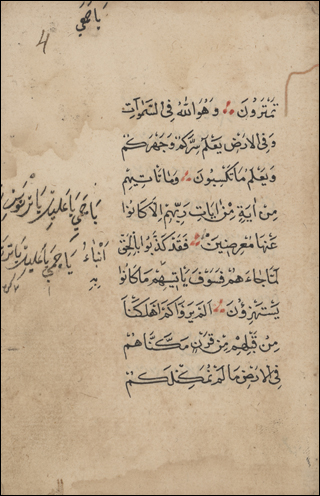 4
تمترون وهو الله فى السموات
وفى الارض يعلم سركم وجهركم
ويعلم ما تكسبون وما تاتيهم
من اية من ايات ربهم الا كانوا
عنها معرضين فقد كذبوا بالحق
لما جاءهم فسوف ياتيهم ما كانوا
انباء
به
يستهزؤن الم يروا كم اهلكنا
من قبلهم من قرن مكناهم
فى الارض ما لم نمكن لكم